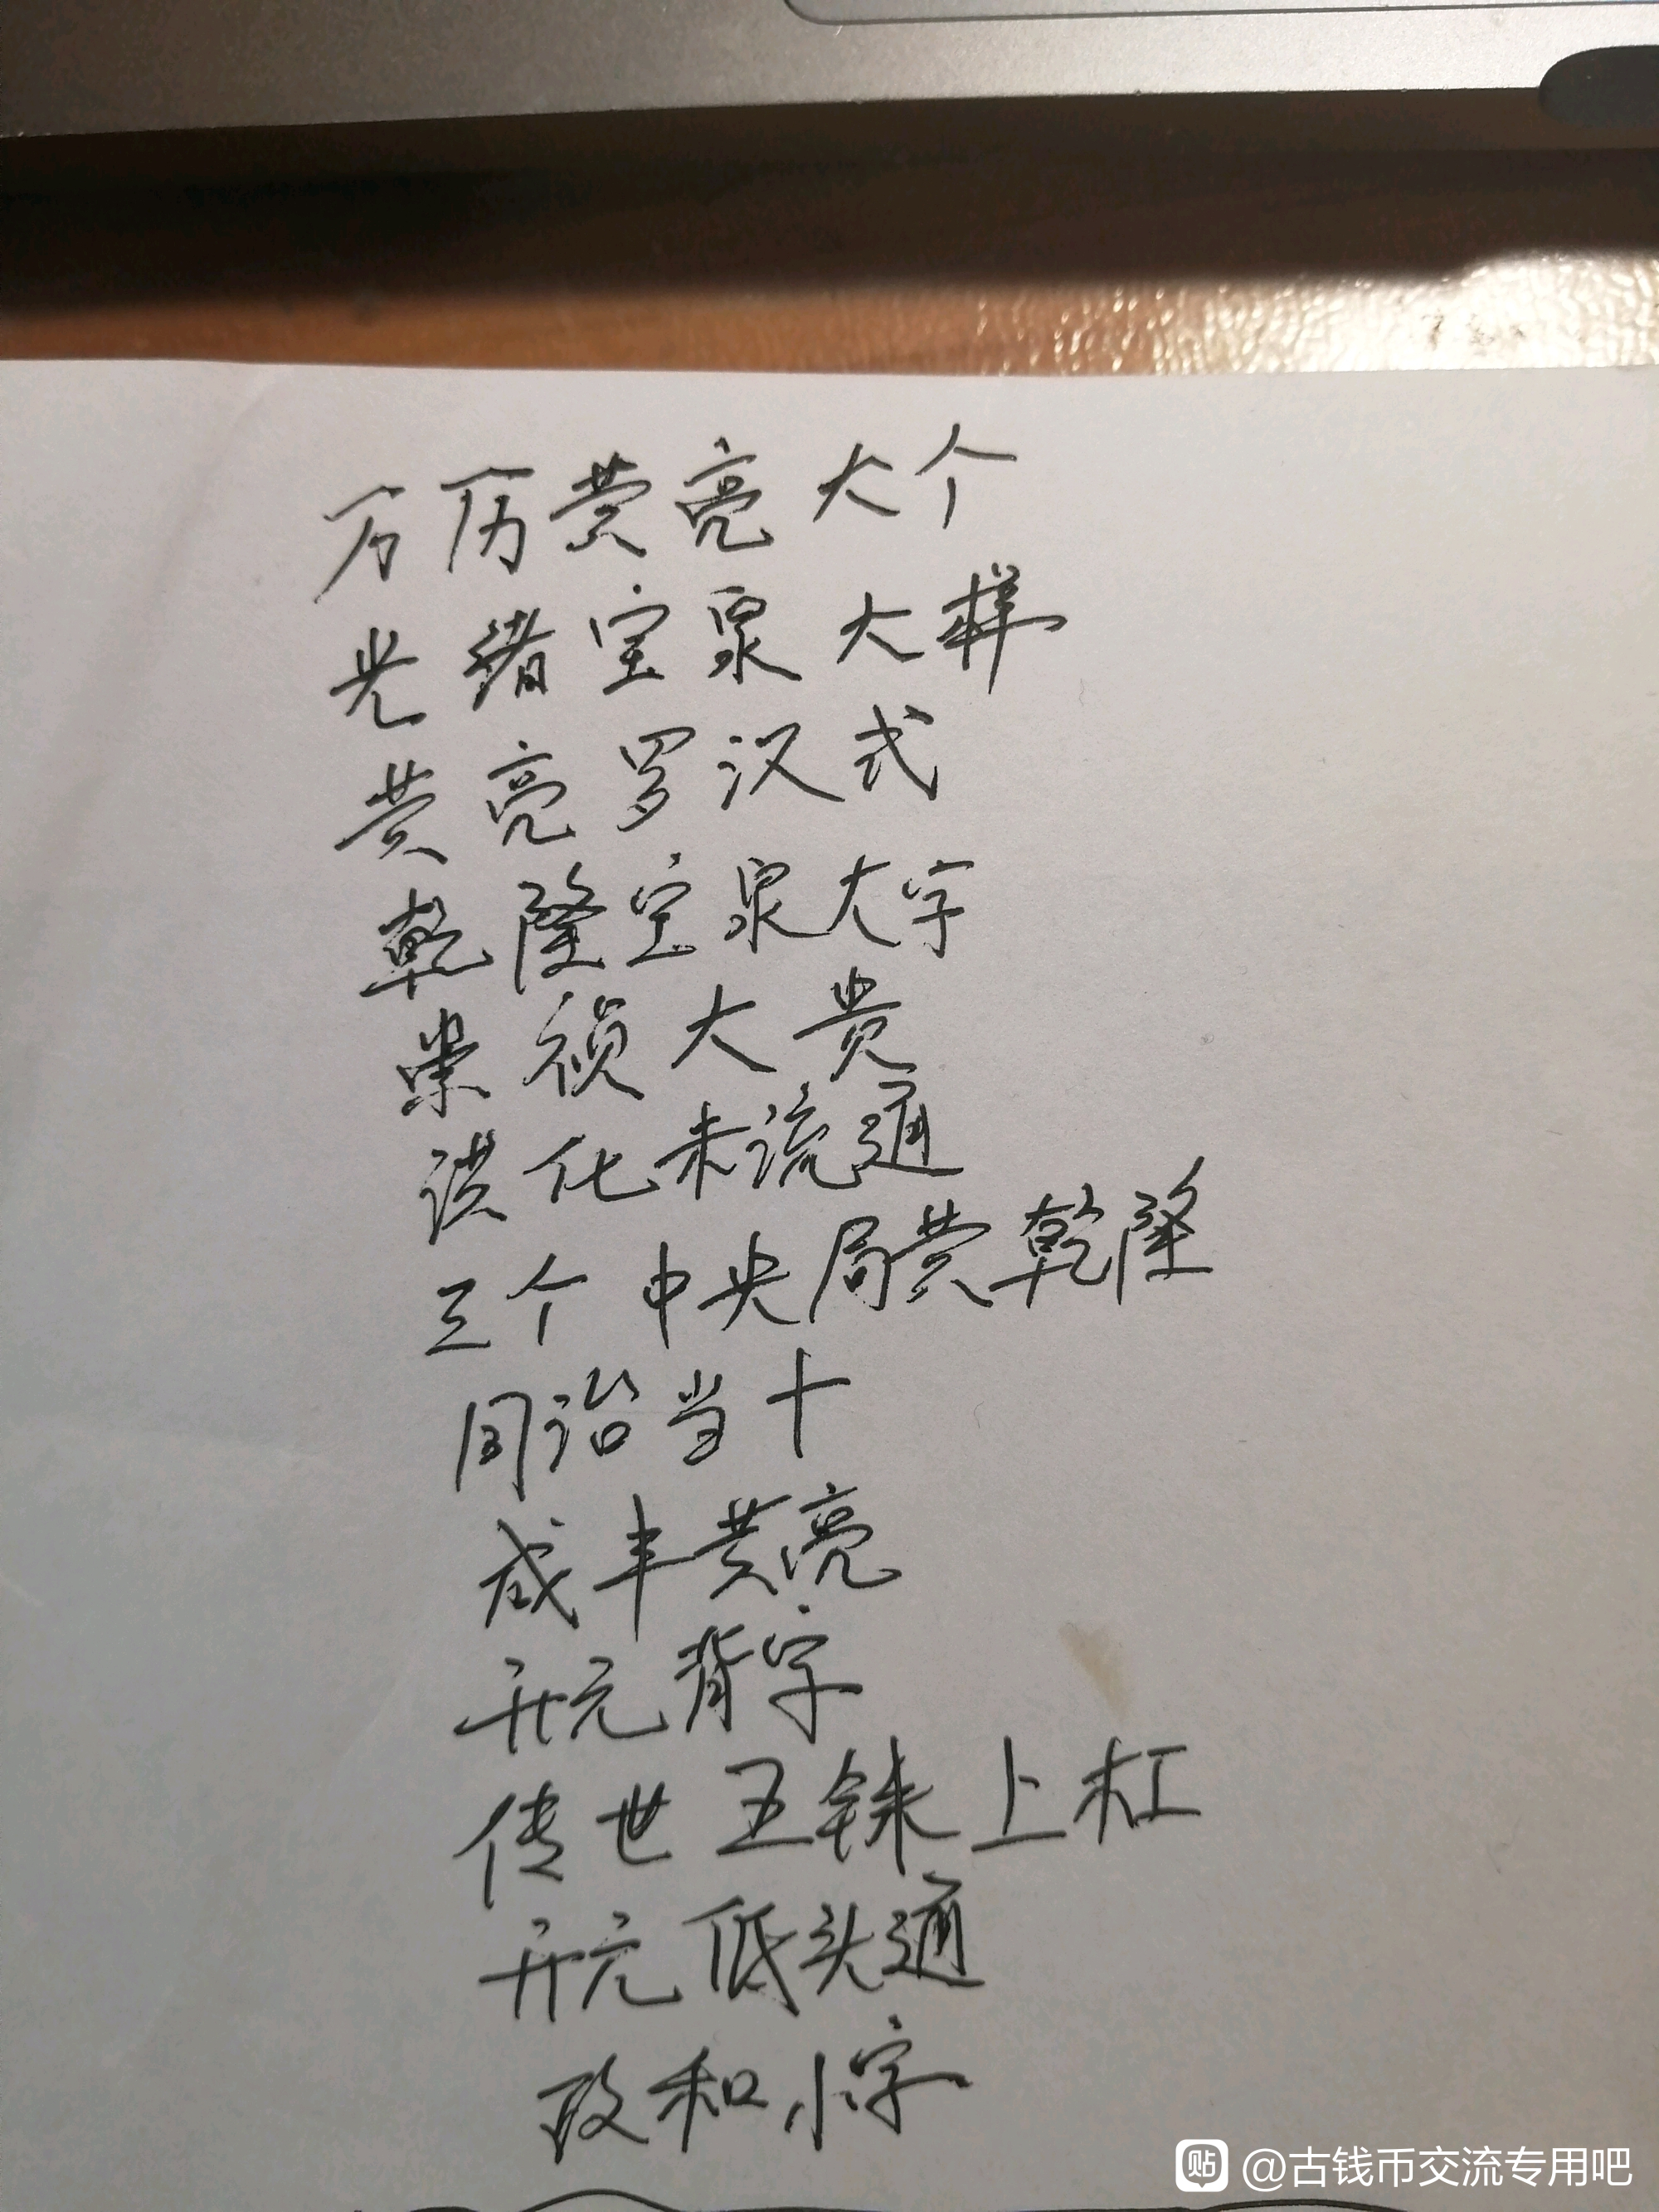 万历黄亮大个
光绪宝泉大样
黄亮罗汉式
乾隆宝泉大字
崇祯大贵
淡化未流通
三个中央局黄乾隆
同治当十
咸丰黄亮
开元背字
传世五铢上杠
开元低头通
政和小字
贴 @古钱币交流专用吧